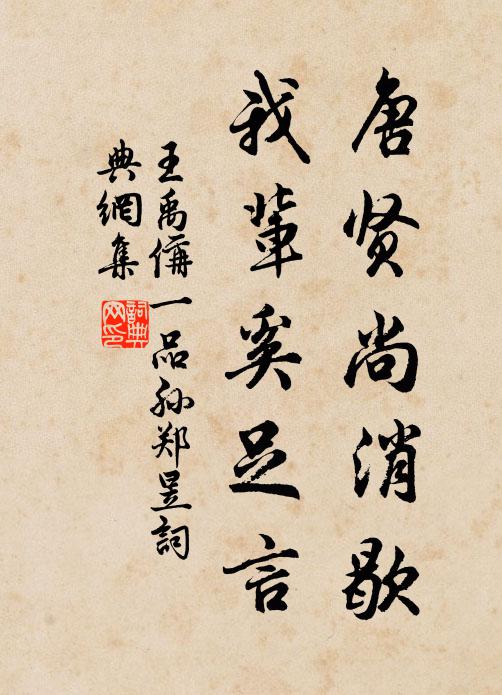 唐贤尚消歇
我辈奚足言
王禹偁一品孙郑昱詞
典網集
詞典
网印